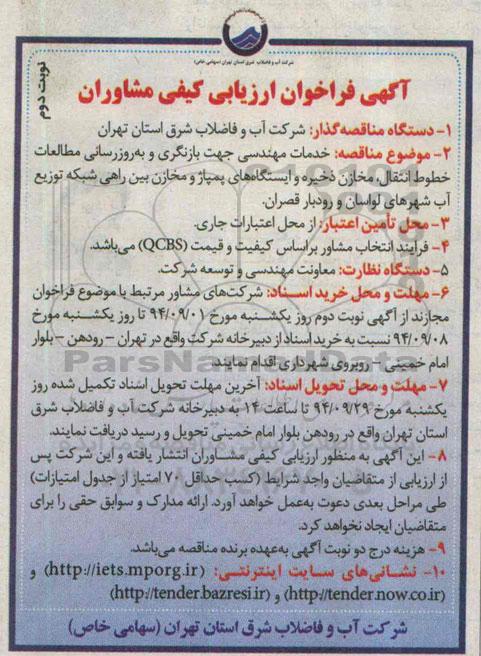 شرکت آب و فاضلاب شرق استان تهران (سهامی خاص)
نوبت دوم
آگهی فراخوان ارزیابی کیفی مشاوران
۱- دستگاه مناقصه‌گذار: شرکت آب و فاضلاب شرق استان تهران
۲- موضوع مناقصه: خدمات مهندسی جهت بازنگری و به‌روزرسانی مطالعات
خطوط انتقال، مخازن ذخیره و ایستگاه‌های پمپاژ و مخازن بین راهی شبکه توزیع
آب شهرهای لواسان و رودبار قصران.
۳- محل تأمین اعتبار: از محل اعتبارات جاری.
۴- فرایند انتخاب مشاور براساس کیفیت و قیمت (QCBS) می‌باشد.
۵- دستگاه نظارت: معاونت مهندسی و توسعه شرکت.
۶- مهلت و محل خرید اسناد: شرکت‌های مشاور مرتبط با موضوع فراخوان
مجازند از آگهی نوبت دوم روز یکشنبه مورخ ۹۴/۰۹/۰۱ تا روز یکشنبه مورخ
۹۴/۰۹/۰۸ نسبت به خرید اسناد از دبیرخانه شرکت واقع در تهران – رودهن – بلوار
امام خمینی – روبروی شهرداری اقدام نمایند.
۷- مهلت و محل تحویل اسناد: آخرین مهلت تحویل اسناد تکمیل شده روز
یکشنبه مورخ ۹۴/۰۹/۲۹ تا ساعت ۱۴ به دبیرخانه شرکت آب و فاضلاب شرق
استان تهران واقع در رودهن بلوار امام خمینی تحویل و رسید دریافت نمایند.
۸- این آگهی به منظور ارزیابی کیفی مشاوران انتشار یافته و این شرکت پس
از ارزیابی از متقاضیان واجد شرایط (کسب حداقل ۷۰ امتیاز از جدول امتیازات)
طی مراحل بعدی دعوت به‌عمل خواهد آورد. ارائه مدارک و سوابق حقی را برای
متقاضیان ایجاد نخواهد کرد.
۹- هزینه درج دو نوبت آگهی به‌عهده برنده مناقصه می‌باشد.
۱۰- نشانی‌های سایت اینترنتی: (http://iets.mporg.ir) و
(http://tender.now.co.ir) و (http://tender.bazresi.ir)
شرکت آب و فاضلاب شرق استان تهران (سهامی خاص)
ParsNamadData